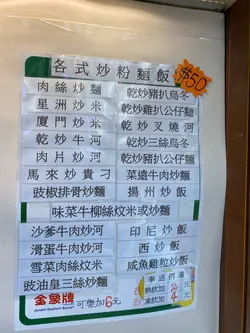 各式炒粉麵飯
$50
肉絲炒麵 乾炒豬扒烏冬
星洲炒米 乾炒雞扒公仔麵
廈門炒米 乾炒叉燒河
乾炒牛河 乾炒三絲烏冬
肉片炒河 乾炒豬扒公仔麵
馬來炒貴刁 菜遠牛肉炒麵
豉椒排骨炒麵 揚州炒飯
味菜牛柳絲炆米或炒麵
沙爹牛肉炒河 印尼炒飯
滑蛋牛肉炒河 西炒飯
雪菜肉絲炆米 咸魚雞粒炒飯
豉油皇三絲炒麵
金象牌
Golden Elephant Brand
可樂加6元